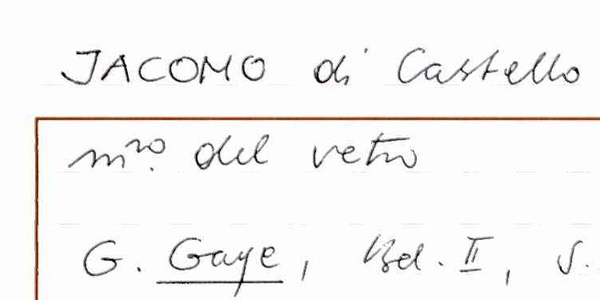 JACOMO di Castello
mro. del vetro
G. Gaye, Bd. II, S.